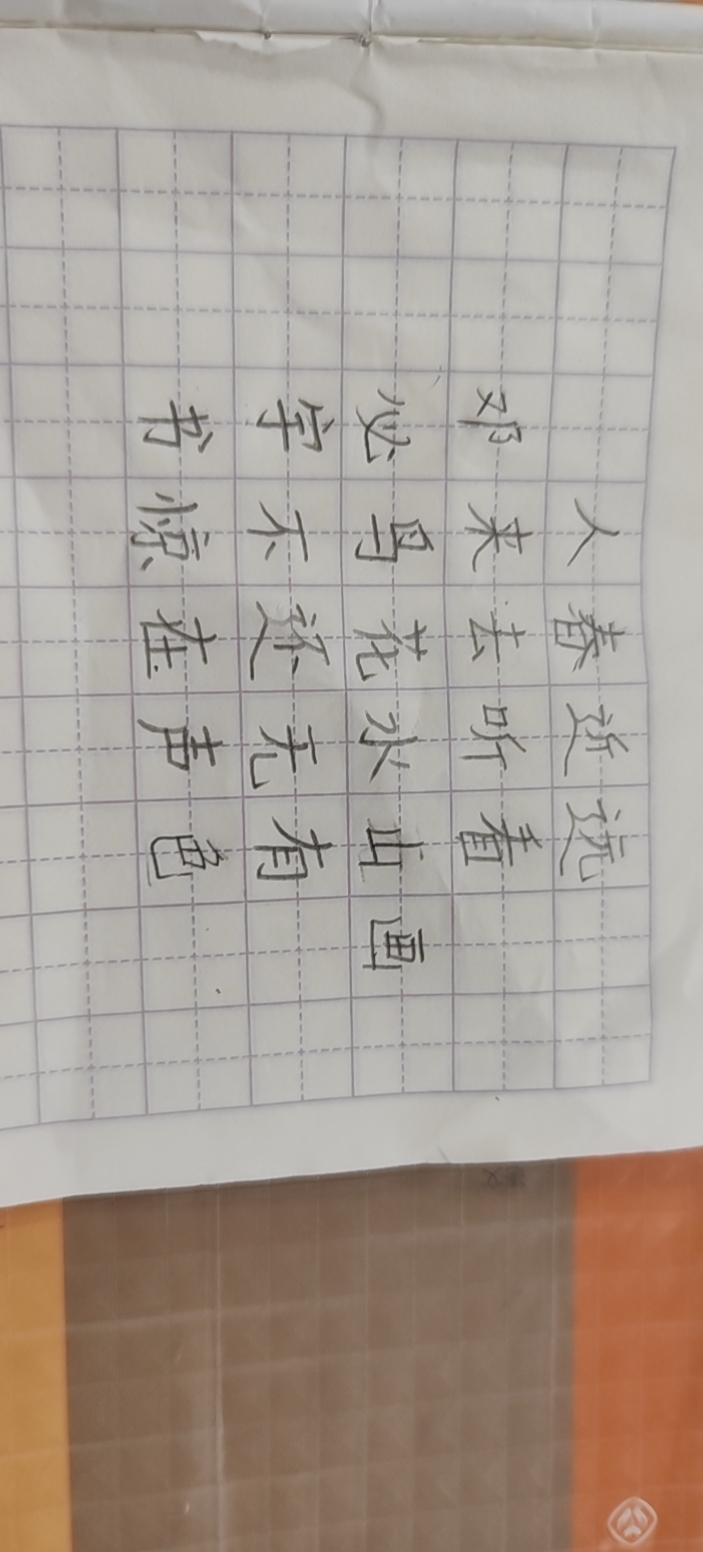 人春近远
邓来去听看
鸟花水山画
字不还无有
书惊在声色